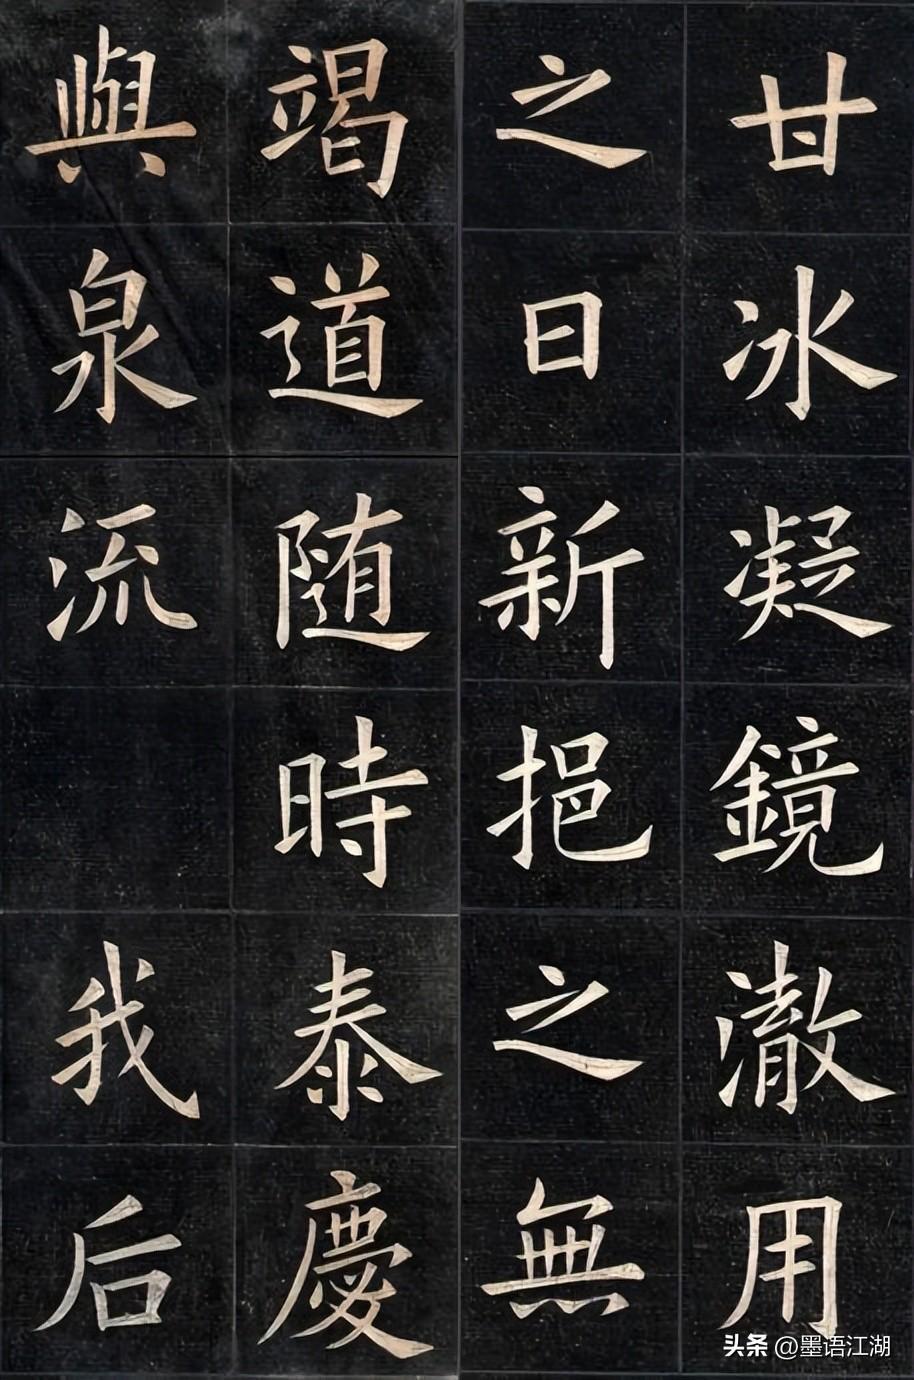 甘冰凝鏡澈用
之日新挹之無
竭道随時泰慶
與泉流 我后
头条 @墨语江湖